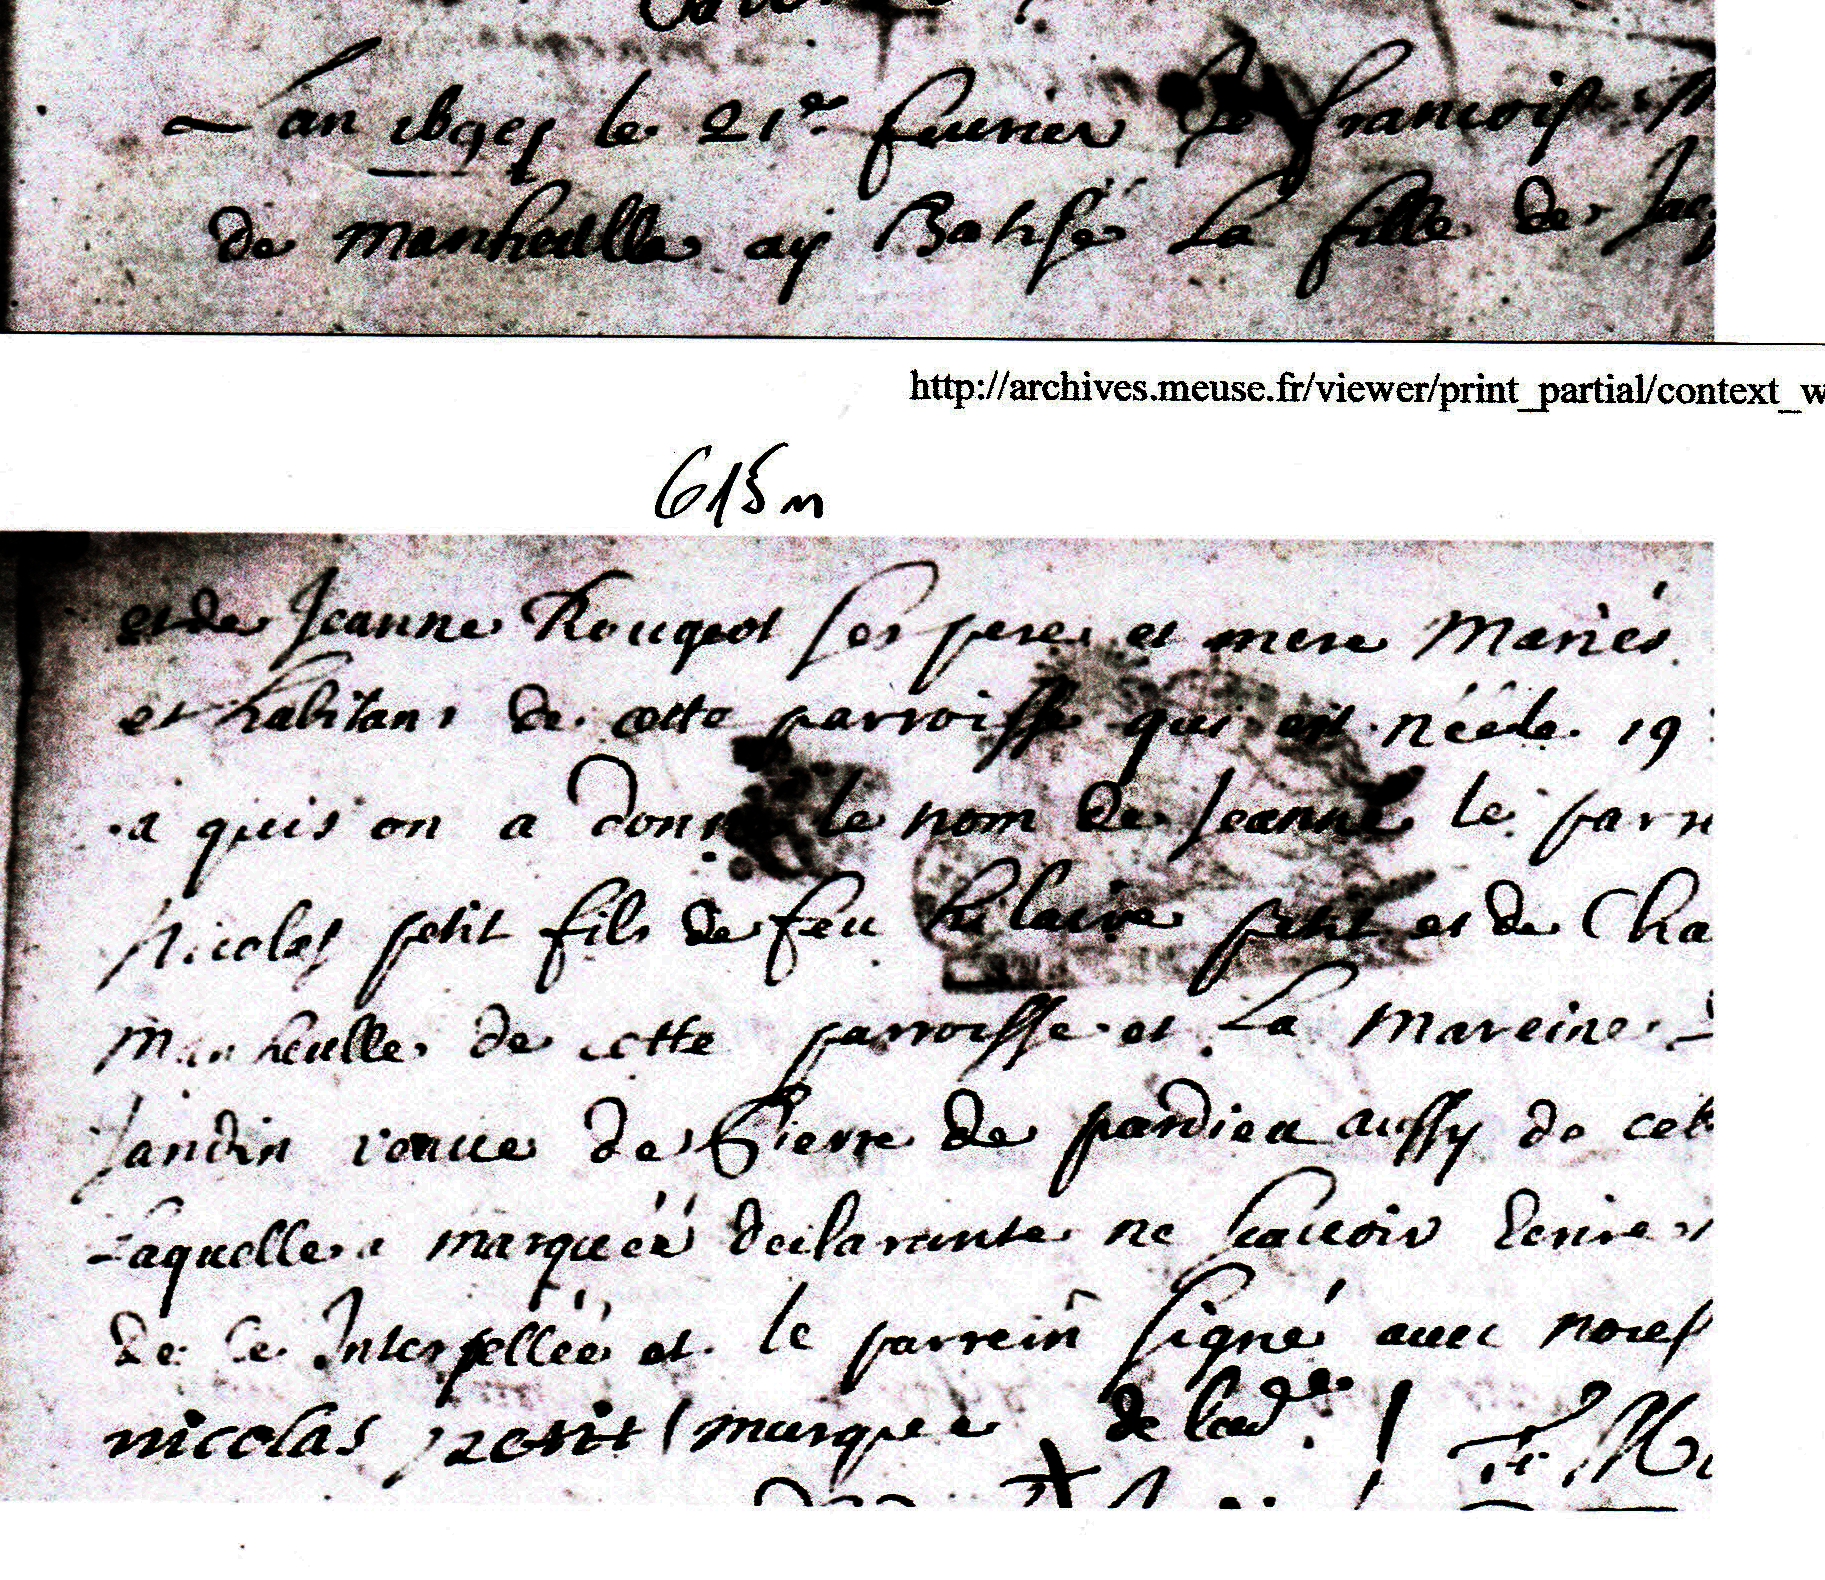 Lan 169es le 21e feurier Je francois
de manheulle aÿ Batisé La fille de Jacq
http://archives.meuse.fr/viewer/print_partial/context_w
615m
et de Jeanne Rouqeot ses pere et mere Mariés
et habitans de cette parroisse qui est néé le 19
a quis on a donné le nom de Jeanne le parr
Nicolas petit fils de feu hilaire petit et de Cha
Manheulle de cette parroisse et La mareine
Jandin venue de Pierre de pardieu aussy de cet
Laquelle a marquéé declarante ne scauoir Ecrire
de ce Interpelléé et le parrein signé auec nous
nicolas petit marque de lad.